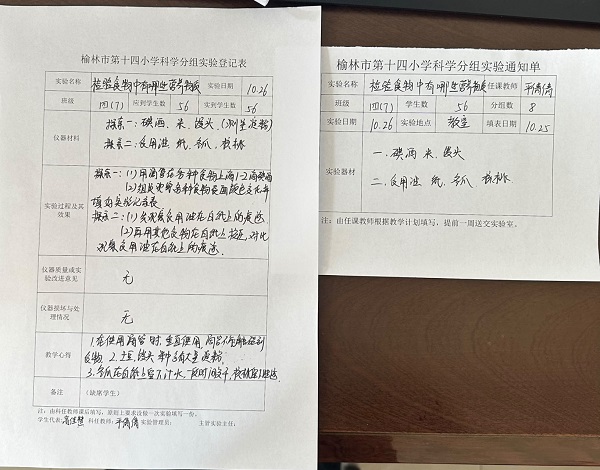 榆林市第十四小学科学分组实验登记表
实验名称 检验食物中有哪些营养物质 实验日期 10.26
班级 四(7) 应到学生数 56 实到学生数 56
仪器材料
探索一:碘酒、米、馒头、(测生淀粉)
探索二:食用油、纸、冬瓜、核桃
实验过程及其效果
探索一:(1)用滴管在各种食物上滴1-2滴碘酒
(2)组员观察各种食物表面颜色变化并
填写实验记录表
探索二:(1)食用油在白纸上的痕迹
(2)再用其他食物在白纸上按压,对比
观察食用油在白纸上的痕迹
仪器质量或实验改进意见 无
仪器损坏与处理情况 无
教学心得
1.在使用滴管时,垂直使用,
食物 2.土豆、馒头、米含有大量淀粉
3.冬瓜在白纸上留下汁水,
备注 (缺席学生)
注:由科任教师课后填写,原则上要求没做一次实验填写一份。
学生代表: 科任教师: 实验管理员: 主管实验主任:
榆林市第十四小学科学分组实验通知单
实验名称 检验食物中有哪些营养物质 任课教师
班级 四(7) 学生数 56 分组数 8
实验日期 10.26 实验地点 教室 填表日期 10.25
实验器材
一、碘酒、米、馒头
二、食用油、纸、冬瓜、核桃
注:由任课教师根据教学计划填写,提前一周送交实验室。